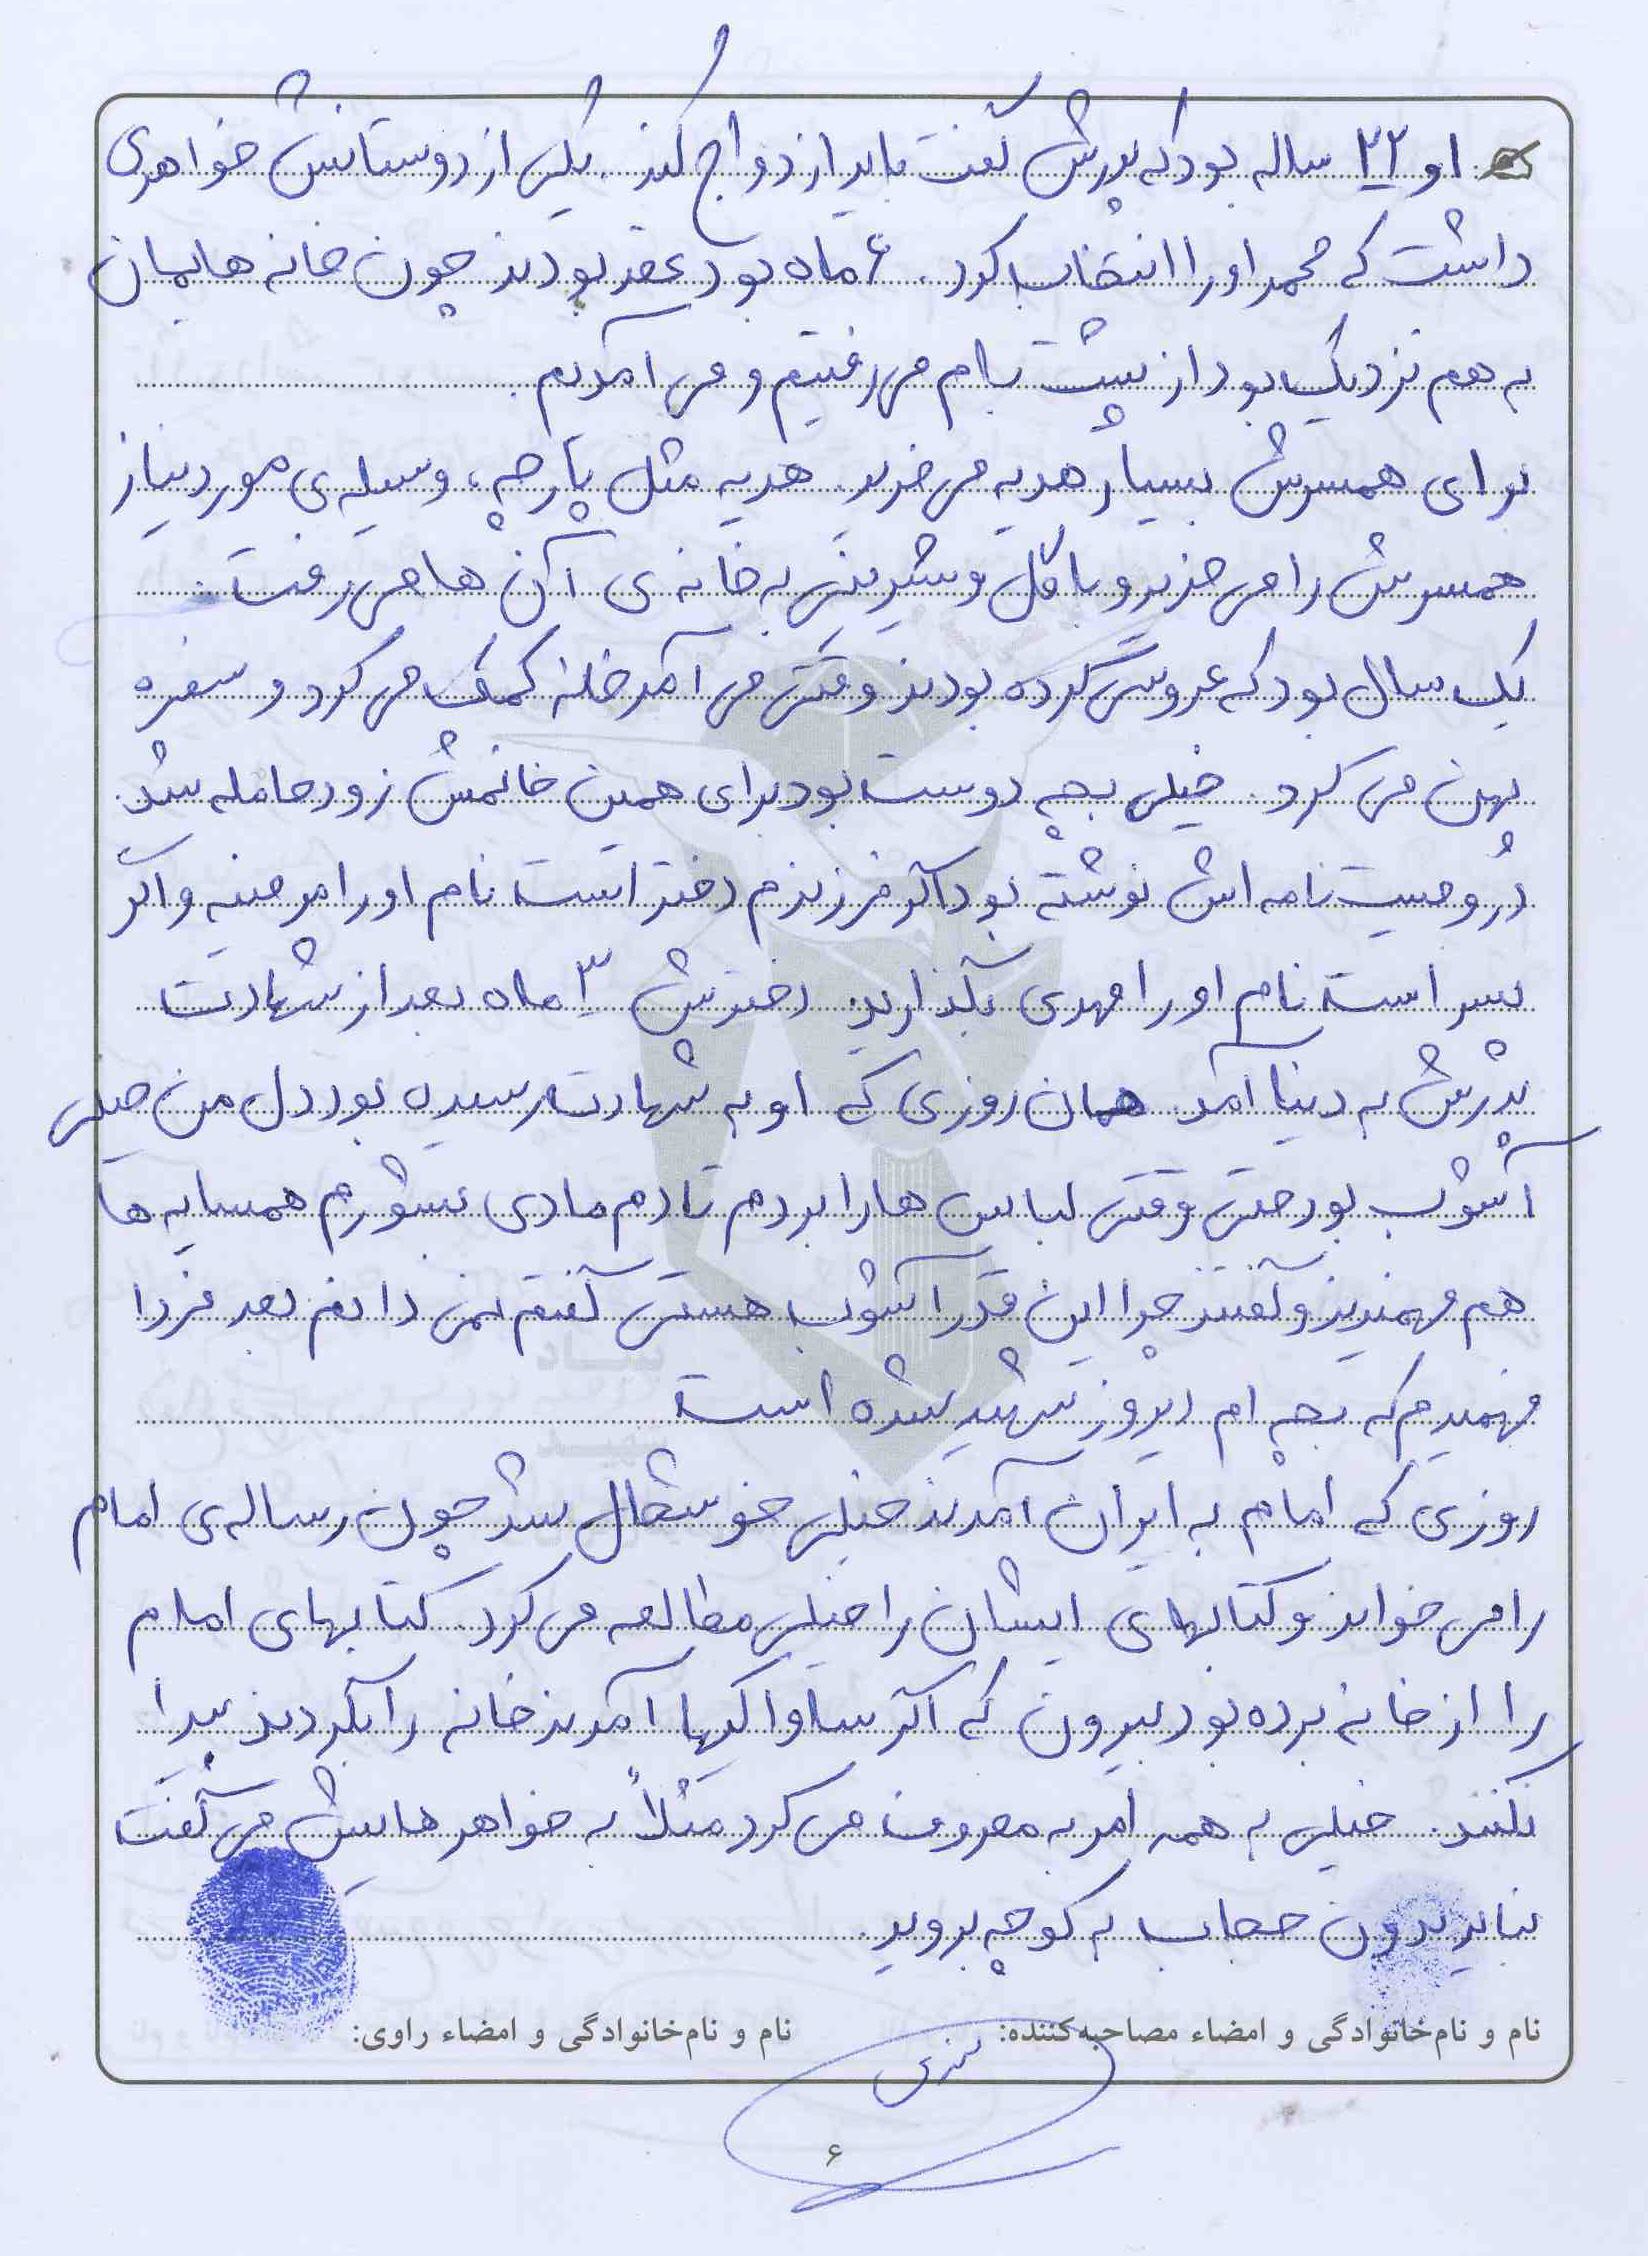 او ۲۲ ساله بود که پدرش گفت باید ازدواج کند. یکی از دوستانش خواهری
داشت که محمد او را انتخاب کرد. ۶ ماه بود عقد بودند چون خانه هایمان
به هم نزدیک بود از پشت بام می رفتیم و می آمدیم.
برای همسرش بسیار هدیه می خرید. هدیه مثل پارچه، وسیله ی مورد نیاز
همسرش را می خرید و با گل و شیرینی به خانه ی آن ها می رفت.
یک سال بود که عروسی کرده بودند وقتی می آمد خانه کمک می کرد و سفره
پهن می کرد. خیلی بچه دوست بود برای همین خانمش زود حامله شد.
در وصیت نامه اش نوشته بود اگر فرزندم دختر است نام او را مرضیه و اگر
پسر است نام او را مهدی بگذارید. دخترش ۳ ماه بعد از شهادت
پدرش به دنیا آمد. همان روزی که او به شهادت رسیده بود دل من خیلی
آشوب بود حتی وقتی لباس ها را بردم تا دم مادی بشورم همسایه ها
هم فهمیدند و گفتند چرا این قدر آشوب هستی گفتم نمی دانم بعد فردا
فهمیدم که بچه ام دیروز شهید شده است
روزی که امام به ایران آمدند خیلی خوشحال شد چون رساله ی امام
را می خواند و کتابهای ایشان را خیلی مطالعه می کرد. کتابهای امام
را از خانه برده بود بیرون که اگر ساواکیها آمدند خانه را بگردند پیدا
نکنند. خیلی به همه امر به معروف می کرد مثلاً به خواهرهایش می گفت
نباید بدون حجاب به کوچه بروید.
نام و نام‌خانوادگی و امضاء مصاحبه‌کننده: نام و نام‌خانوادگی و امضاء راوی:
۶